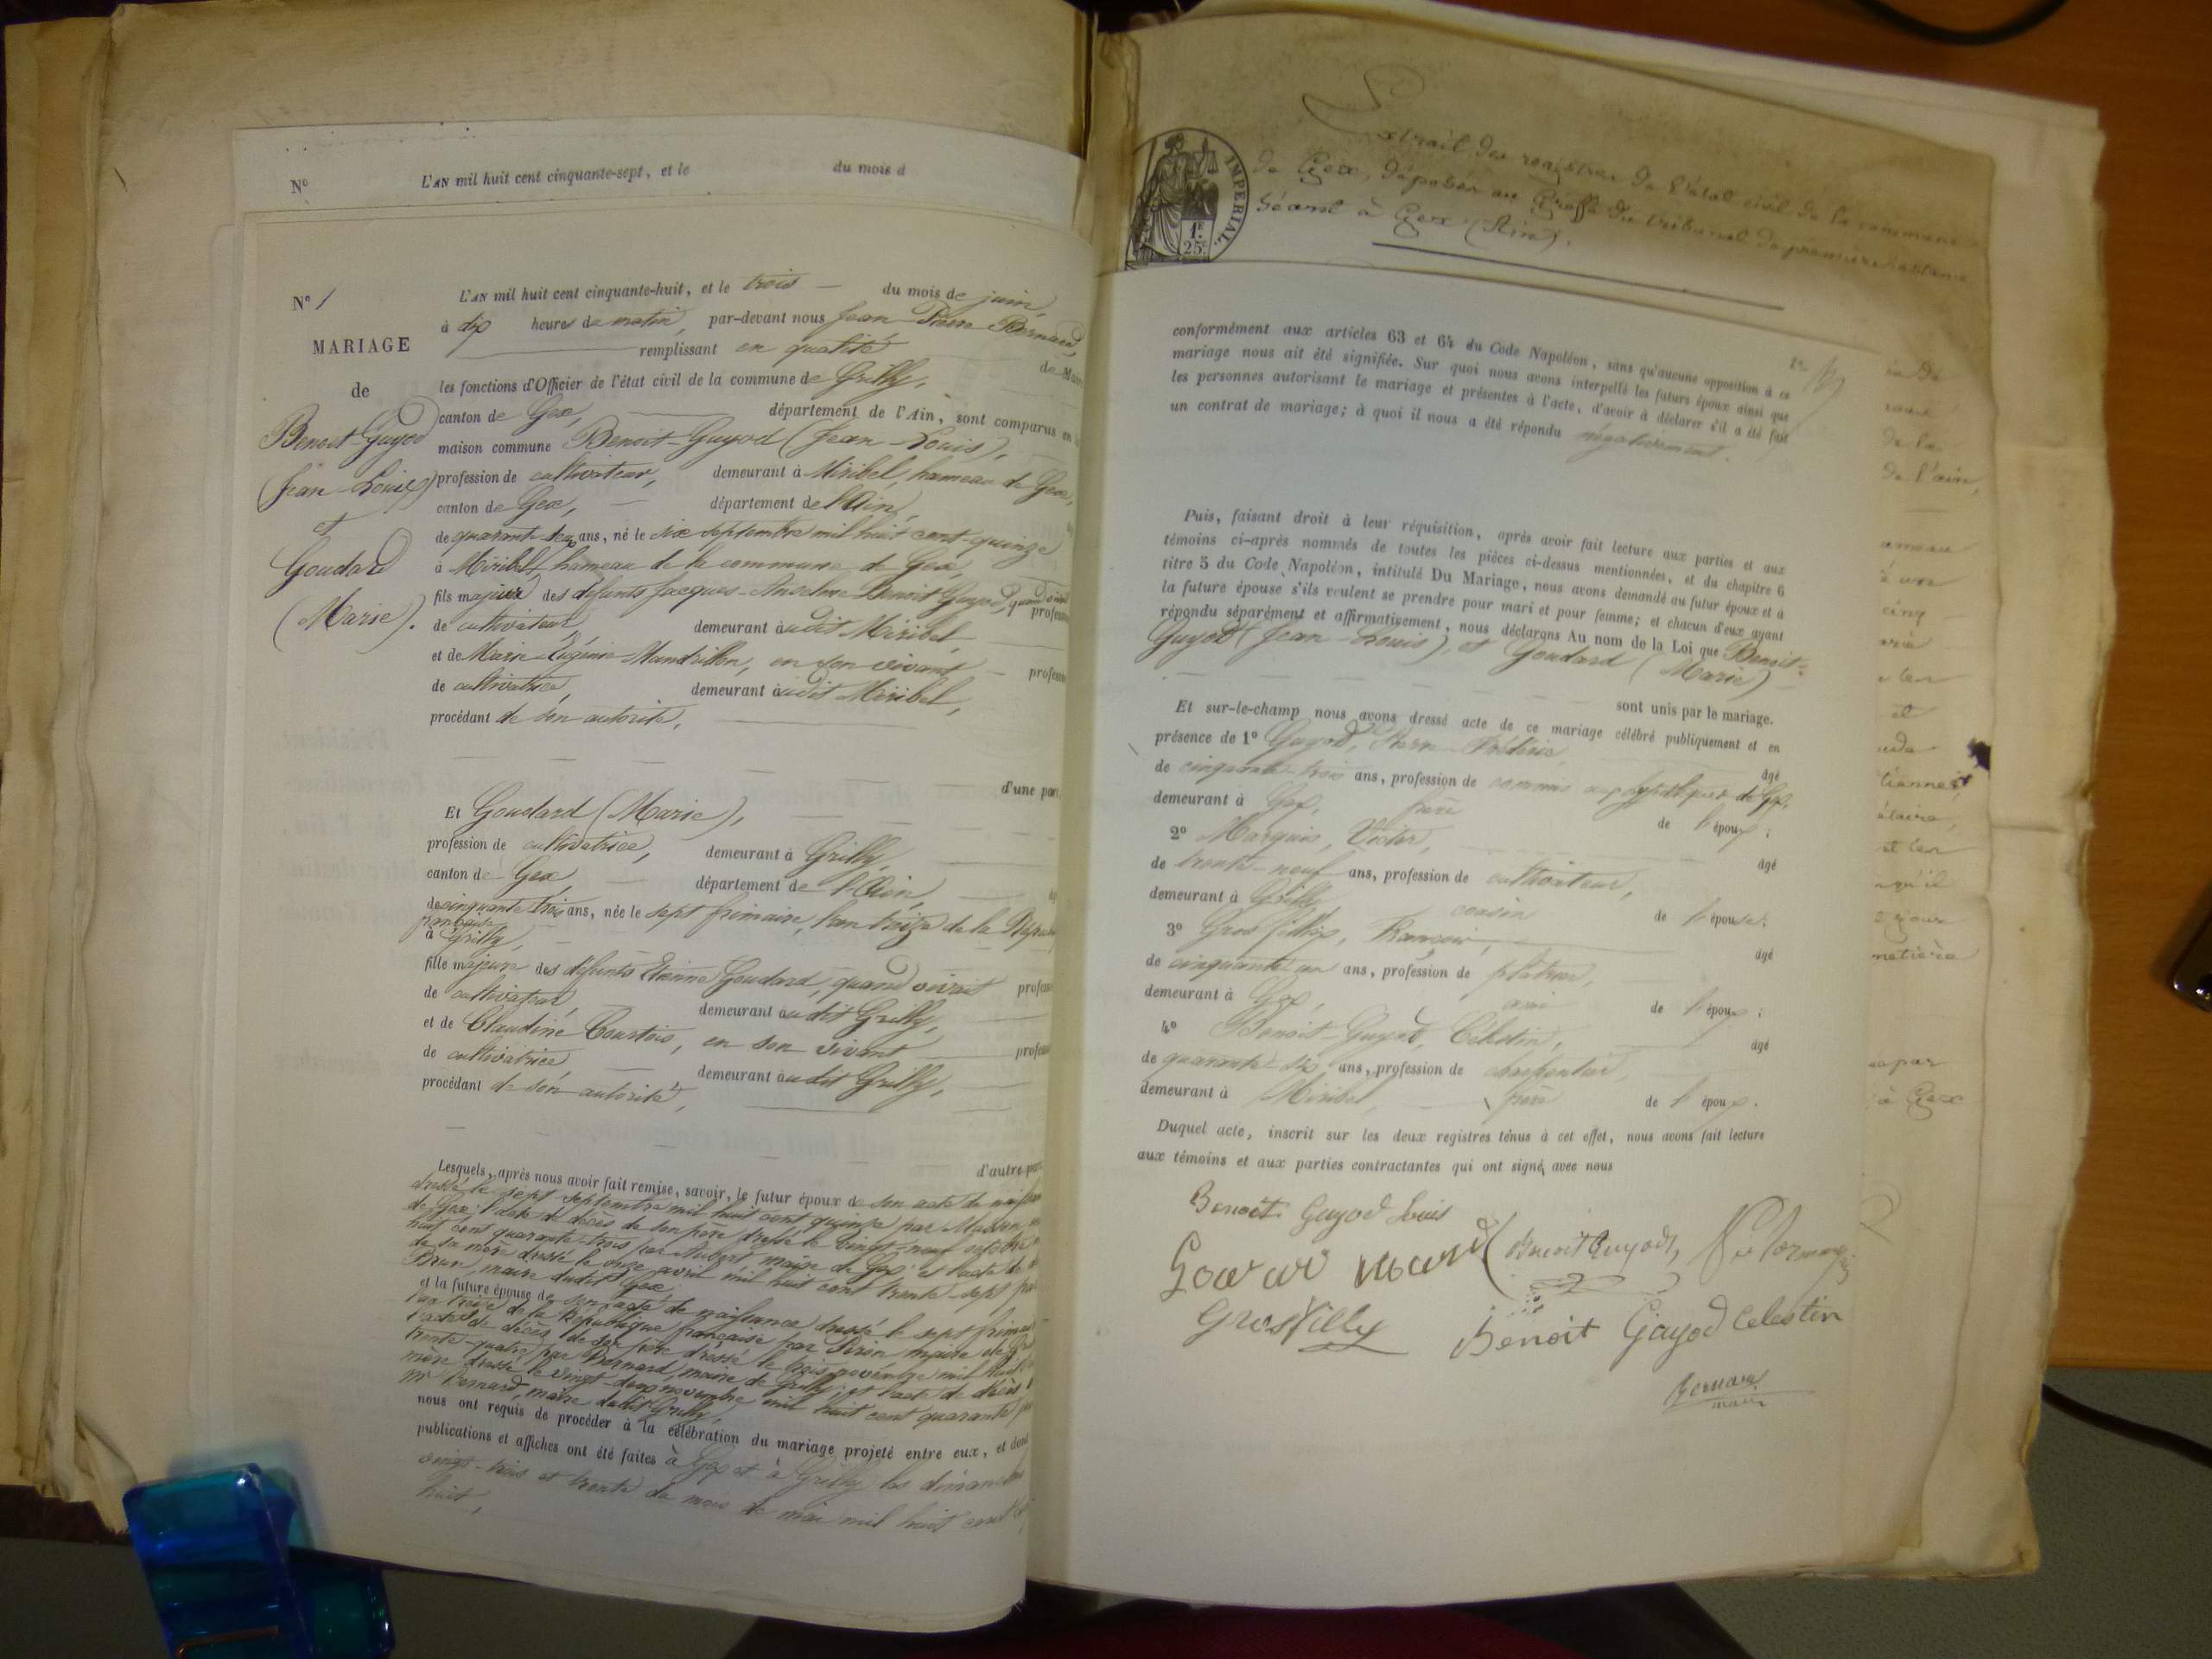 Nº L'AN mil huit cent cinquante-sept, et le du mois d
Nº 1
MARIAGE
de
Benoit-Guyod
(Jean-Louis)
et
Goudard
(Marie).
L'AN mil huit cent cinquante-huit, et le trois du mois de juin,
à dix heures du matin, par-devant nous Jean Pierre Bernard,
remplissant en qualité de Maire
les fonctions d'Officier de l'état civil de la commune de Grilly,
canton de Gex, département de l'Ain, sont comparus en la
maison commune Benoit-Guyod (Jean-Louis),
profession de cultivateur, demeurant à Miribel, hameau de Gex,
canton de Gex, département de l'Ain,
de quarante-deux ans, né le six septembre mil huit cent quinze
à Miribel, hameau de la commune de Gex,
fils majeur des défunts Jacques-Anselme Benoit Guyod, quand vivait profession
de cultivateur, demeurant audit Miribel,
et de Marie-Eugénie Mandrillon, en son vivant profession
de cultivatrice, demeurant audit Miribel,
procédant de son autorité,
d'une part,
Et Goudard (Marie),
profession de cultivatrice, demeurant à Grilly,
canton de Gex, département de l'Ain,
de cinquante-trois ans, née le sept frimaire, l'an treize de la République
française
à Grilly,
fille majeure des défunts Etienne Goudard, quand vivait profession
de cultivateur, demeurant audit Grilly,
et de Claudine Courtois, en son vivant profession
de cultivatrice, demeurant audit Grilly,
procédant de son autorité,
d'autre part,
Lesquels, après nous avoir fait remise, savoir, le futur époux de son acte de naissance
dressé le sept septembre mil huit cent quinze par Masson,
de Gex; l'acte de décès de son père dressé le vingt-neuf octobre
huit cent quarante-trois par Aubert, maire de Gex; et l'acte de
de sa mère dressé le onze avril mil huit cent trente-sept par
Brun, maire dudit Gex,
et la future épouse de son acte de naissance dressé le sept frimaire
l'an treize de la République française par maire de
l'acte de décès de son père dressé le trois novembre mil huit
trente-quatre par Bernard, maire de Grilly; et l'acte de décès
mère dressé le vingt-deux novembre mil huit cent quarante par
Mr Bernard, maire dudit Grilly,
nous ont requis de procéder à la célébration du mariage projeté entre eux, et dont
publications et affiches ont été faites à Gex et à Grilly les dimanches
vingt-trois et trente du mois de mai mil huit cent
huit,
Extrait des registres de l'état civil de la commune
de Gex, déposés au Greffe du tribunal de première instance
séant à Gex (Ain).
IMPERIAL.
1F
25c
conformément aux articles 63 et 64 du Code Napoléon, sans qu'aucune opposition à ce
mariage nous ait été signifiée. Sur quoi nous avons interpellé les futurs époux ainsi que
les personnes autorisant le mariage et présentes à l'acte, d'avoir à déclarer s'il a été fait
un contrat de mariage; à quoi il nous a été répondu négativement.
Puis, faisant droit à leur réquisition, après avoir fait lecture aux parties et aux
témoins ci-après nommés de toutes les pièces ci-dessus mentionnées, et du chapitre 6
titre 5 du Code Napoléon, intitulé Du Mariage, nous avons demandé au futur époux et à
la future épouse s'ils veulent se prendre pour mari et pour femme; et chacun d'eux ayant
répondu séparément et affirmativement, nous déclarons Au nom de la Loi que Benoit-
Guyod (Jean-Louis), et Goudard (Marie)
sont unis par le mariage.
Et sur-le-champ nous avons dressé acte de ce mariage célébré publiquement et en
présence de 1º Guyod, Frédéric, âgé
de cinquante-trois ans, profession de commis aux hypothèques de Gex,
demeurant à Gex, de l'époux;
2º Marquis, Victor, âgé
de trente-neuf ans, profession de cultivateur,
demeurant à Grilly, cousin de l'épouse;
3º Gros fillex, François, âgé
de cinquante un ans, profession de plâtrier,
demeurant à Gex, ami de l'époux;
4º Benoit-Guyod, Célestin, âgé
de quarante-six ans, profession de charpentier,
demeurant à Miribel, de l'époux.
Duquel acte, inscrit sur les deux registres tenus à cet effet, nous avons fait lecture
aux témoins et aux parties contractantes qui ont signé avec nous
Benoit Guyod Louis
Benoit Guyod,
Benoit Gayod Celestin
Bernard
maire
de l'ain,
à Gex